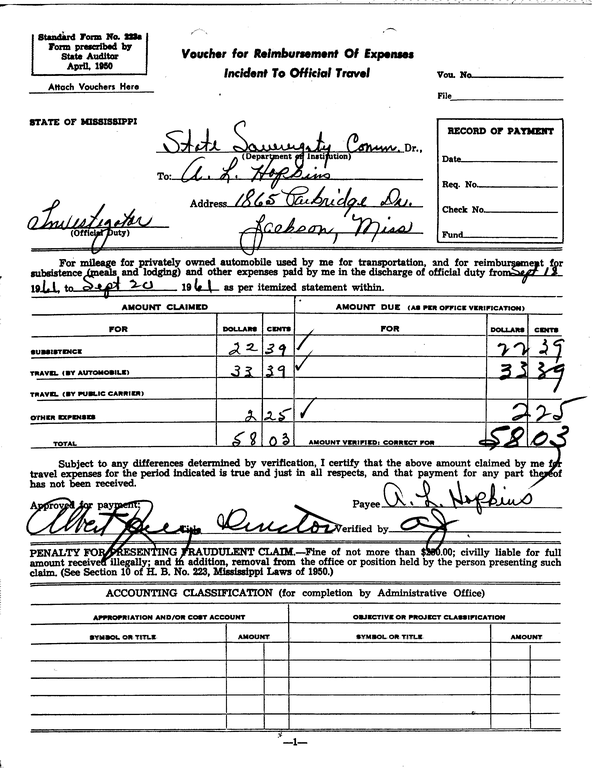 Standard Form No. 223a
Form prescribed by
State Auditor
April, 1950
Attach Vouchers Here
Voucher for Reimbursement Of Expenses
Incident To Official Travel
Vou. No.
File
STATE OF MISSISSIPPI
State Sovereignty Comm. Dr.,
(Department of Institution)
To: A. L. Hopkins
Address 1865 Dr.
Jackson, Miss
Investigator
(Official Duty)
RECORD OF PAYMENT
Date
Req. No.
Check No.
Fund
For mileage for privately owned automobile used by me for transportation, and for reimbursement for
subsistence (meals and lodging) and other expenses paid by me in the discharge of official duty from Sept 18
1961, to Sept 20 1961 as per itemized statement within.
AMOUNT CLAIMED AMOUNT DUE (AS PER OFFICE VERIFICATION)
FOR DOLLARS CENTS FOR DOLLARS CENTS
SUBSISTENCE 22 39 ✓ 22 39
TRAVEL (BY AUTOMOBILE) 33 39 ✓ 33 39
TRAVEL (BY PUBLIC CARRIER)
OTHER EXPENSES 2 25 ✓ 2 25
TOTAL 58 03 AMOUNT VERIFIED: CORRECT FOR 58 03
Subject to any differences determined by verification, I certify that the above amount claimed by me for
travel expenses for the period indicated is true and just in all respects, and that payment for any part thereof
has not been received.
Approved for payment: Payee A. L. Hopkins
Albert Jones Title Director Verified by
PENALTY FOR PRESENTING FRAUDULENT CLAIM.—Fine of not more than $250.00; civilly liable for full
amount received illegally; and in addition, removal from the office or position held by the person presenting such
claim. (See Section 10 of H. B. No. 223, Mississippi Laws of 1950.)
ACCOUNTING CLASSIFICATION (for completion by Administrative Office)
APPROPRIATION AND/OR COST ACCOUNT OBJECTIVE OR PROJECT CLASSIFICATION
SYMBOL OR TITLE AMOUNT SYMBOL OR TITLE AMOUNT
—1—